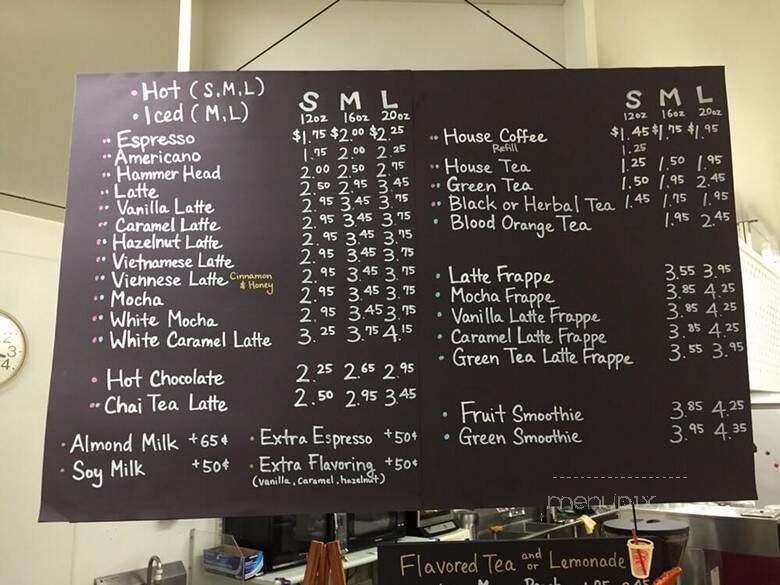 Hot (S,M,L)
Iced (M,L)
S M L
12oz 16oz 20oz
Espresso $1.75 $2.00 $2.25
Americano 1.75 2.00 2.25
Hammer Head 2.00 2.50 2.75
Latte 2.50 2.95 3.45
Vanilla Latte 2.95 3.45 3.75
Caramel Latte 2.95 3.45 3.75
Hazelnut Latte 2.95 3.45 3.75
Vietnamese Latte 2.95 3.45 3.75
Viennese Latte Cinnamon & Honey 2.95 3.45 3.75
Mocha 2.95 3.45 3.75
White Mocha 2.95 3.45 3.75
White Caramel Latte 3.25 3.75 4.15
Hot Chocolate 2.25 2.65 2.95
Chai Tea Latte 2.50 2.95 3.45
Almond Milk +65¢
Soy Milk +50¢
Extra Espresso +50¢
Extra Flavoring +50¢
(vanilla, caramel, hazelnut)
S M L
12oz 16oz 20oz
House Coffee $1.45 $1.75 $1.95
Refill 1.25
House Tea 1.25 1.50 1.95
Green Tea 1.50 1.95 2.45
Black or Herbal Tea 1.45 1.75 1.95
Blood Orange Tea 1.95 2.45
Latte Frappe 3.55 3.95
Mocha Frappe 3.85 4.25
Vanilla Latte Frappe 3.85 4.25
Caramel Latte Frappe 3.85 4.25
Green Tea Latte Frappe 3.55 3.95
Fruit Smoothie 3.85 4.25
Green Smoothie 3.95 4.35
menupix
Flavored Tea and or Lemonade